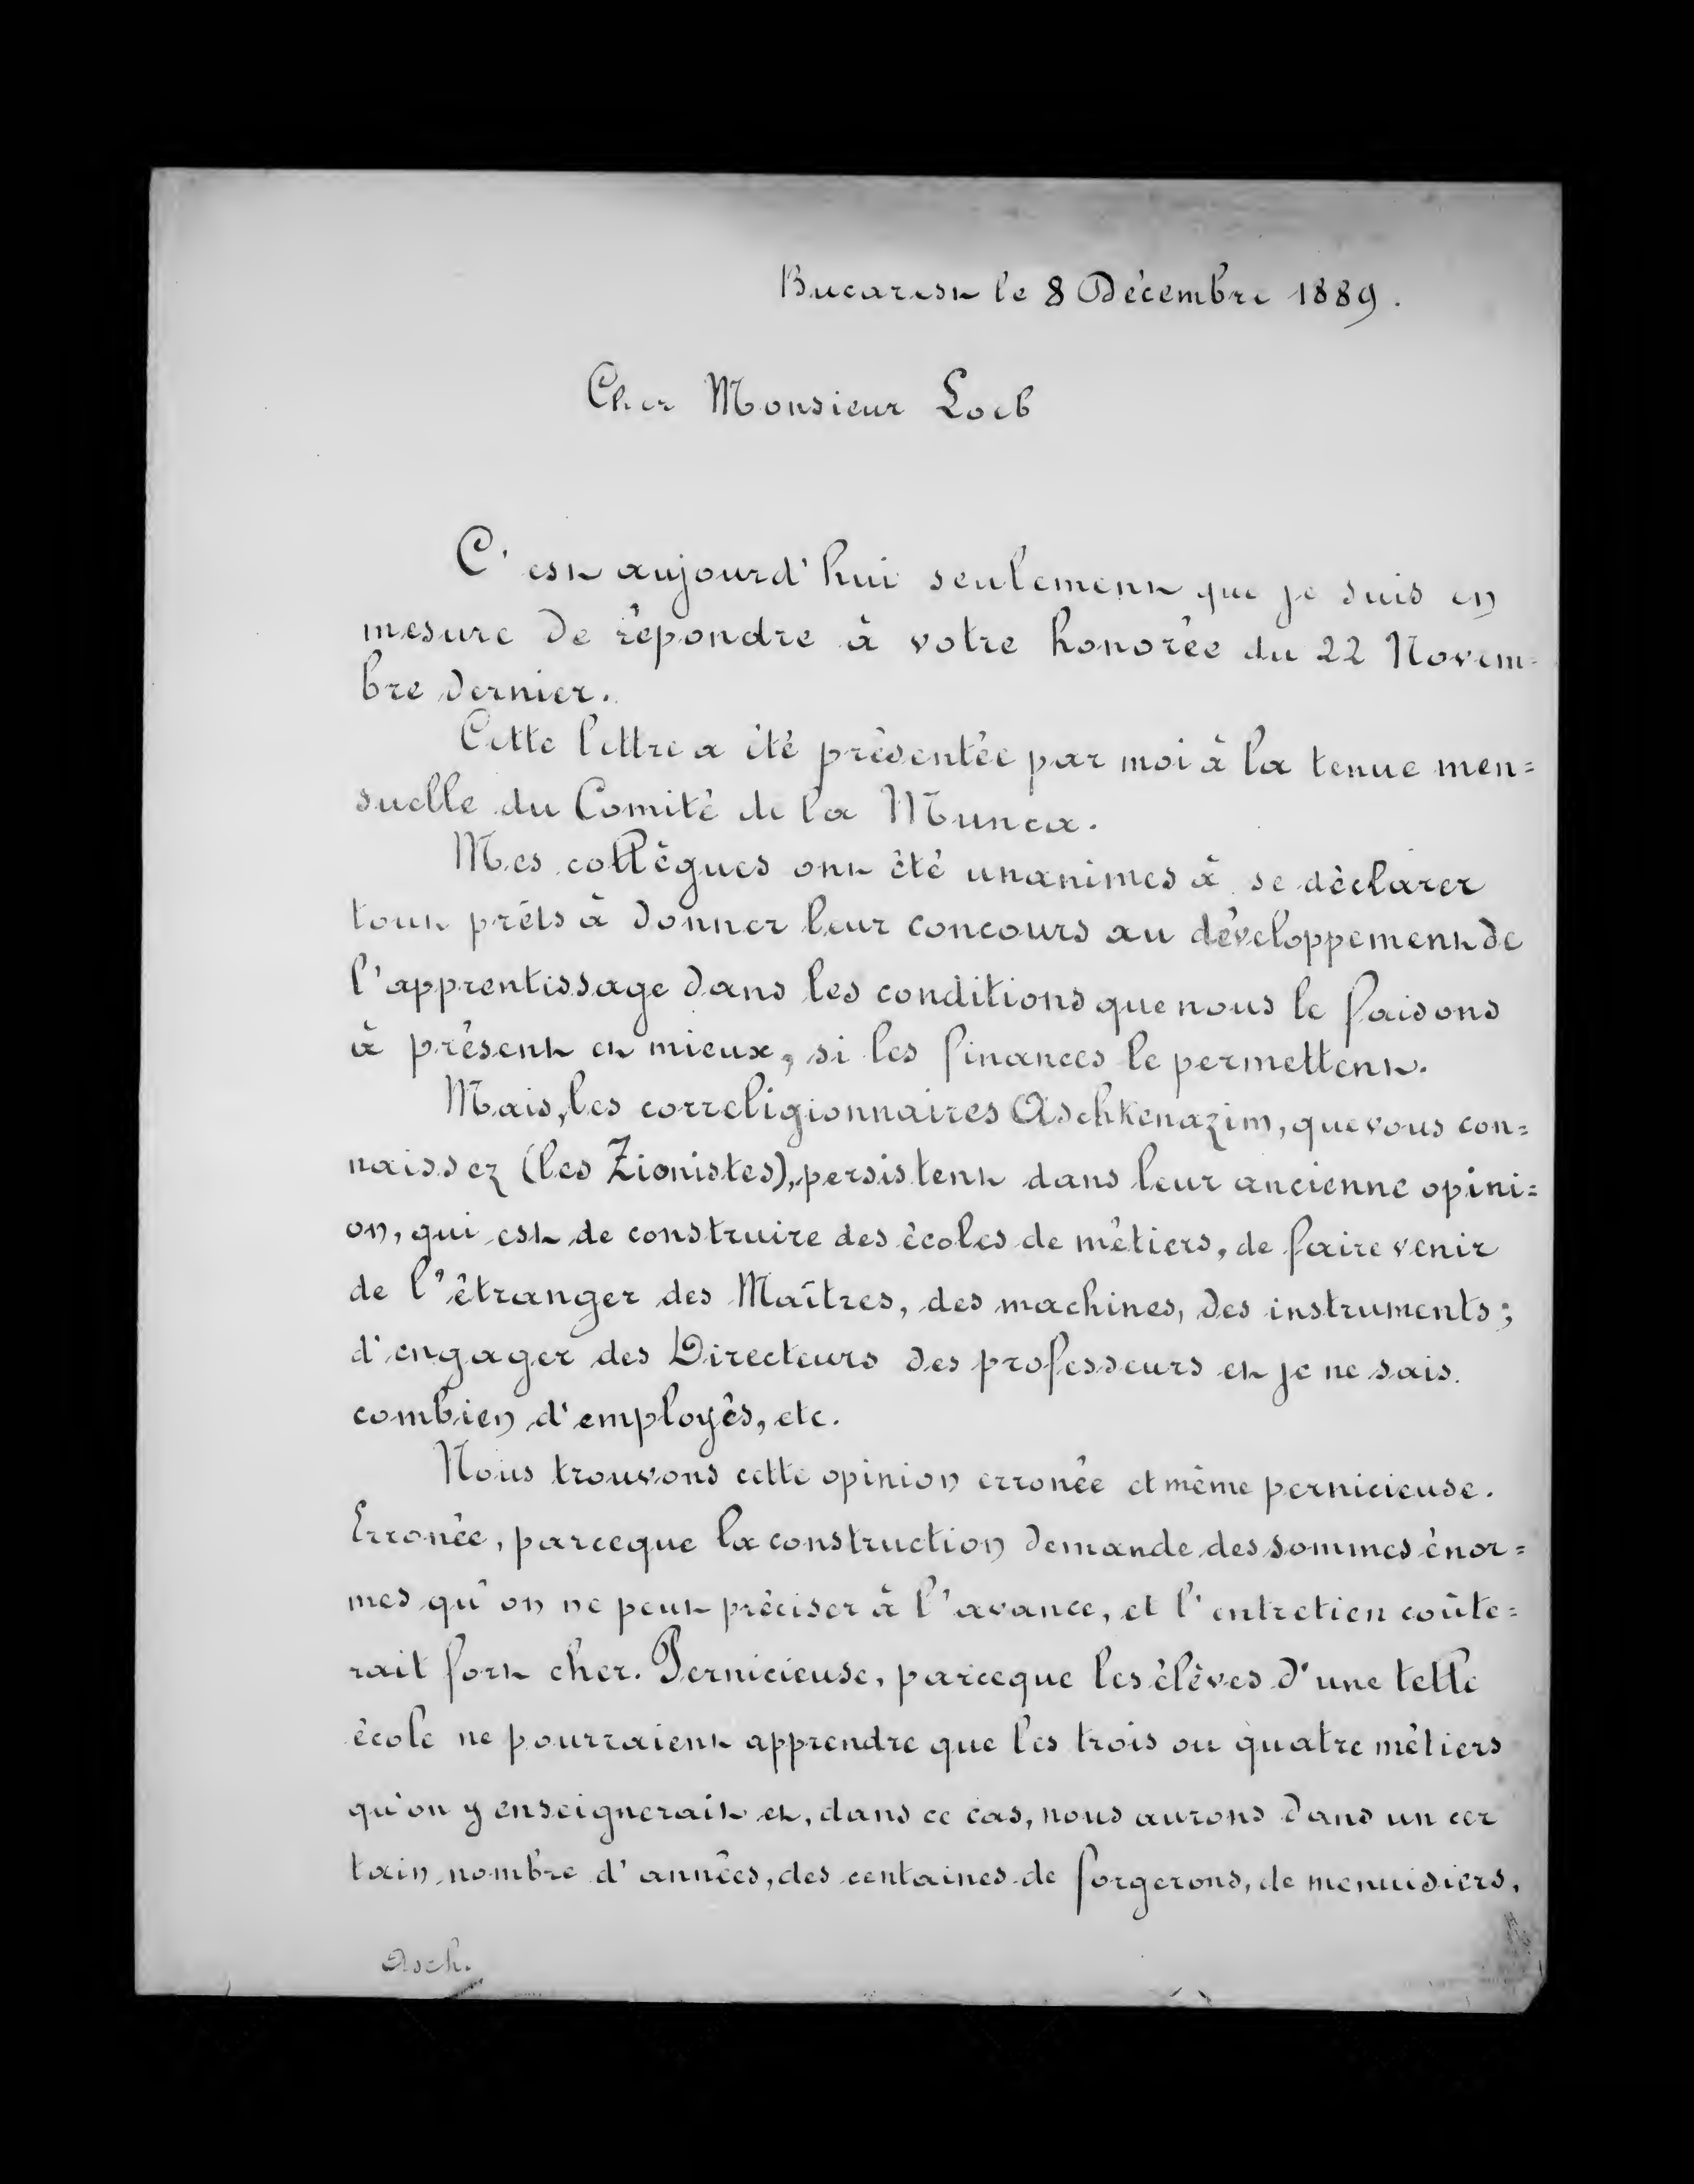 Bucarest le 8 Décembre 1889.
Cher Monsieur Loeb
C'est aujourd'hui seulement que je suis en
mesure de répondre à votre honorée du 22 Novem=
bre dernier.
Cette lettre a été présentée par moi à la tenue men=
suelle du Comité de la Munca.
Mes collègues ont été unanimes à se déclarer
tout prêts à donner leur concours au développement de
l'apprentissage dans les conditions que nous le faisons
à présent et mieux, si les finances le permettent.
Mais, les correligionnaires Aschkenazim, que vous con=
naissez (les Zionistes), persistent dans leur ancienne opini=
on, qui est de construire des écoles de métiers, de faire venir
de l'étranger des Maîtres, des machines, des instruments;
d'engager des Directeurs des professeurs et je ne sais
combien d'employés, etc.
Nous trouvons cette opinion erronée et même pernicieuse.
Erronée, parceque la construction demande des sommes énor=
mes qu'on ne peut préciser à l'avance, et l'entretien coûte=
rait fort cher. Pernicieuse, parceque les élèves d'une telle
école ne pourraient apprendre que les trois ou quatre métiers
qu'on y enseignerait et, dans ce cas, nous aurons dans un cer
tain nombre d'années, des centaines de forgerons, de menuisiers,
Asch.